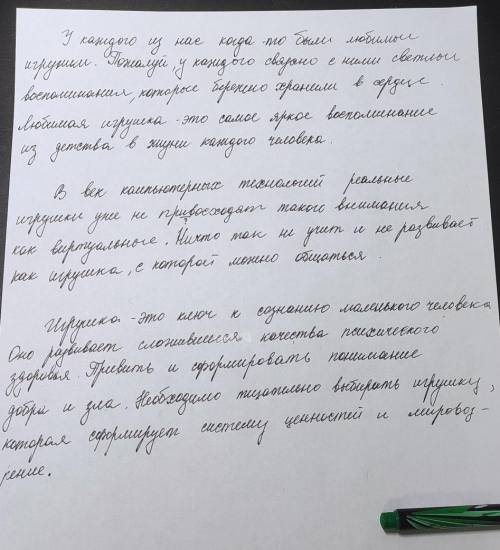 У каждого из нас когда-то были любимые
игрушки. Пожалуй, у каждого связано с ними светлые
воспоминания, которые бережно хранили в сердце.
Любимая игрушка - это самое яркое воспоминание
из детства в жизни каждого человека.
В век компьютерных технологий реальные
игрушки уже не превосходят такого внимания
как виртуальные. Ничто так не учит и не развивает
как игрушка, с которой можно общаться.
Игрушка - это ключ к сознанию маленького человека
Оно развивает сложившиеся качества психического
здоровья. Привить и сформировать понимание
добра и зла. Необходимо тщательно выбирать игрушку,
которая сформирует систему ценностей и мировоз-
рение.